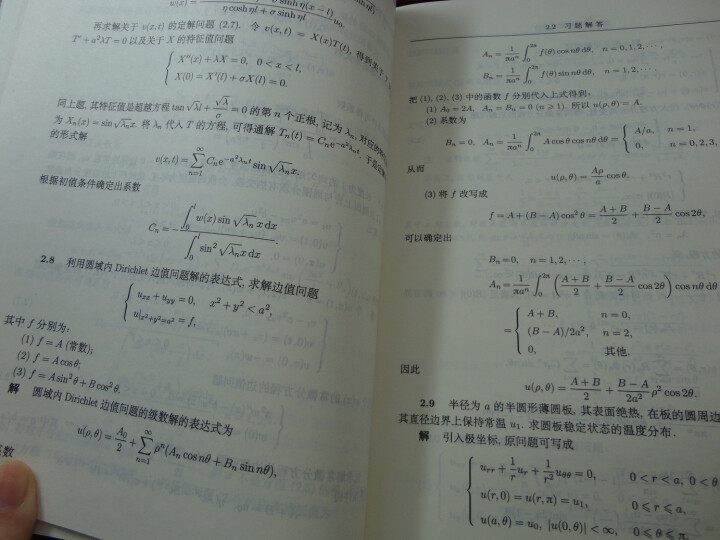 w(x) = sinh η(x − l) / η cosh ηl + σ sinh ηl u₀.
再求解关于 v(x,t) 的定解问题 (2.7). 令 v(x,t) = X(x)T(t), 得到关于
T' + a²λT = 0 以及关于 X 的特征值问题
X''(x) + λX = 0, 0 < x < l,
X(0) = X'(l) + σX(l) = 0.
同上题, 其特征值是超越方程 tan √λl + √λ/σ = 0 的第 n 个正根, 记为 λₙ, 对应的
为 Xₙ(x) = sin √λₙx. 将 λₙ 代入 T 的方程, 可得通解 Tₙ(t) = Cₙe^{−a²λₙt}. 于是
的形式解
v(x,t) = ∑_{n=1}^{∞} Cₙe^{−a²λₙt} sin √λₙx.
根据初值条件确定出系数
Cₙ = − ∫₀ˡ w(x) sin √λₙx dx / ∫₀ˡ sin² √λₙx dx.
2.8 利用圆域内 Dirichlet 边值问题解的表达式, 求解边值问题
uₓₓ + u_{yy} = 0, x² + y² < a²,
u|_{x²+y²=a²} = f,
其中 f 分别为:
(1) f = A (常数);
(2) f = A cos θ;
(3) f = A sin² θ + B cos² θ.
解 圆域内 Dirichlet 边值问题的级数解的表达式为
u(ρ,θ) = A₀/2 + ∑_{n=1}^{∞} ρⁿ(Aₙ cos nθ + Bₙ sin nθ),
系数
2.2 习题解答
Aₙ = 1/πaⁿ ∫₀^{2π} f(θ) cos nθ dθ, n = 0, 1, 2, ⋯,
Bₙ = 1/πaⁿ ∫₀^{2π} f(θ) sin nθ dθ, n = 1, 2, ⋯.
把 (1), (2), (3) 中的函数 f 分别代入上式得到:
(1) A₀ = 2A, Aₙ = Bₙ = 0 (n ⩾ 1). 所以 u(ρ,θ) = A.
(2) 系数为
Bₙ = 0, Aₙ = 1/πaⁿ ∫₀^{2π} A cos θ cos nθ dθ = { A/a, n = 1,
0, n = 0, 2, 3,
从而
u(ρ,θ) = Aρ/a cos θ.
(3) 将 f 改写成
f = A + (B − A) cos² θ = A + B/2 + B − A/2 cos 2θ.
可以确定出
Bₙ = 0, n = 1, 2, ⋯,
Aₙ = 1/πaⁿ ∫₀^{2π} (A + B/2 + B − A/2 cos 2θ) cos nθ dθ
= { A + B, n = 0,
(B − A)/2a², n = 2,
0, 其他.
因此
u(ρ,θ) = A + B/2 + B − A/2a² ρ² cos 2θ.
2.9 半径为 a 的半圆形薄圆板, 其表面绝热, 在板的圆周边
其直径边界上保持常温 u₁. 求圆板稳定状态的温度分布.
解 引入极坐标, 原问题可写成
u_{rr} + 1/r u_r + 1/r² u_{θθ} = 0, 0 < r < a, 0 < θ
u(r,0) = u(r,π) = u₁, 0 ⩽ r ⩽ a,
u(a,θ) = u₀, |u(0,θ)| < ∞, 0 ⩽ θ ⩽ π.